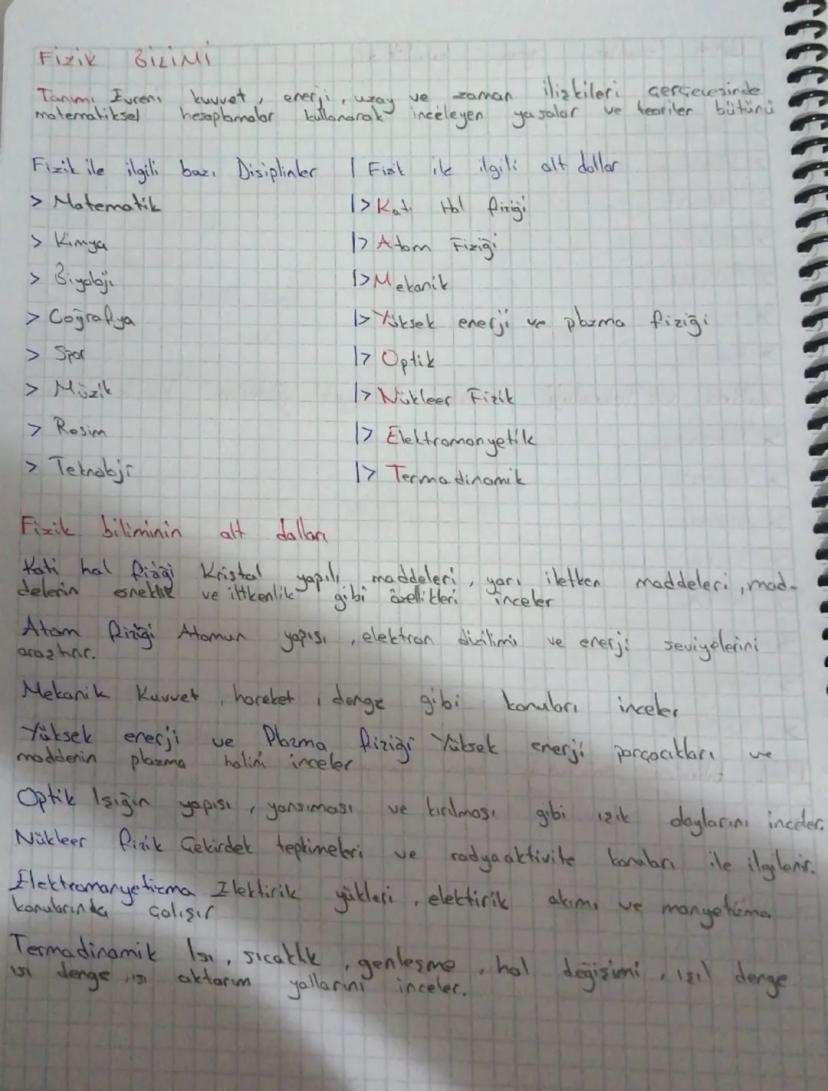 Fizik BiLiMi
Tanımı Evreni kuvvet, enerji, uzay ve zaman ilişkileri çerçevesinde
matematiksel hesaplamalar kullanarak inceleyen yasalar ve teoriler bütünü
Fizik ile ilgili bazı Disiplinler | Fizik ile ilgili alt dallar
> Matematik |> Katı Hal fiziği
> Kimya |> Atom Fiziği
> Biyoloji |> Mekanik
> Coğrafya |> Yüksek enerji ve plazma fiziği
> Spor |> Optik
> Müzik |> Nükleer Fizik
> Resim |> Elektromanyetik
> Teknoloji |> Termadinamik
Fizik biliminin alt dalları
Katı hal fiziği Kristal yapılı maddeleri, yarı iletken maddeleri, mad-
delerin esneklik ve iltkenlik gibi özellikleri inceler
Atom fiziği Atomun yapısı, elektron dizilimi ve enerji seviyelerini
araştırır.
Mekanik Kuvvet, hareket, denge gibi konuları inceler
Yüksek enerji ve Plazma fiziği Yüksek enerji parçacıkları ve
maddenin plazma halini inceler
Optik Işığın yapısı, yansıması ve kırılması gibi ışık olaylarını inceler.
Nükleer fizik Çekirdek tepkimeleri ve radyoaktivite konuları ile ilgilenir.
Elektromanyetizma Elektirik yükleri, elektirik akımı ve manyetizma
konularında çalışır
Termadinamik Isı, sıcaklık, genleşme, hal değişimi, ısıl denge
ısı denge, ısı aktarım yallarını inceler.